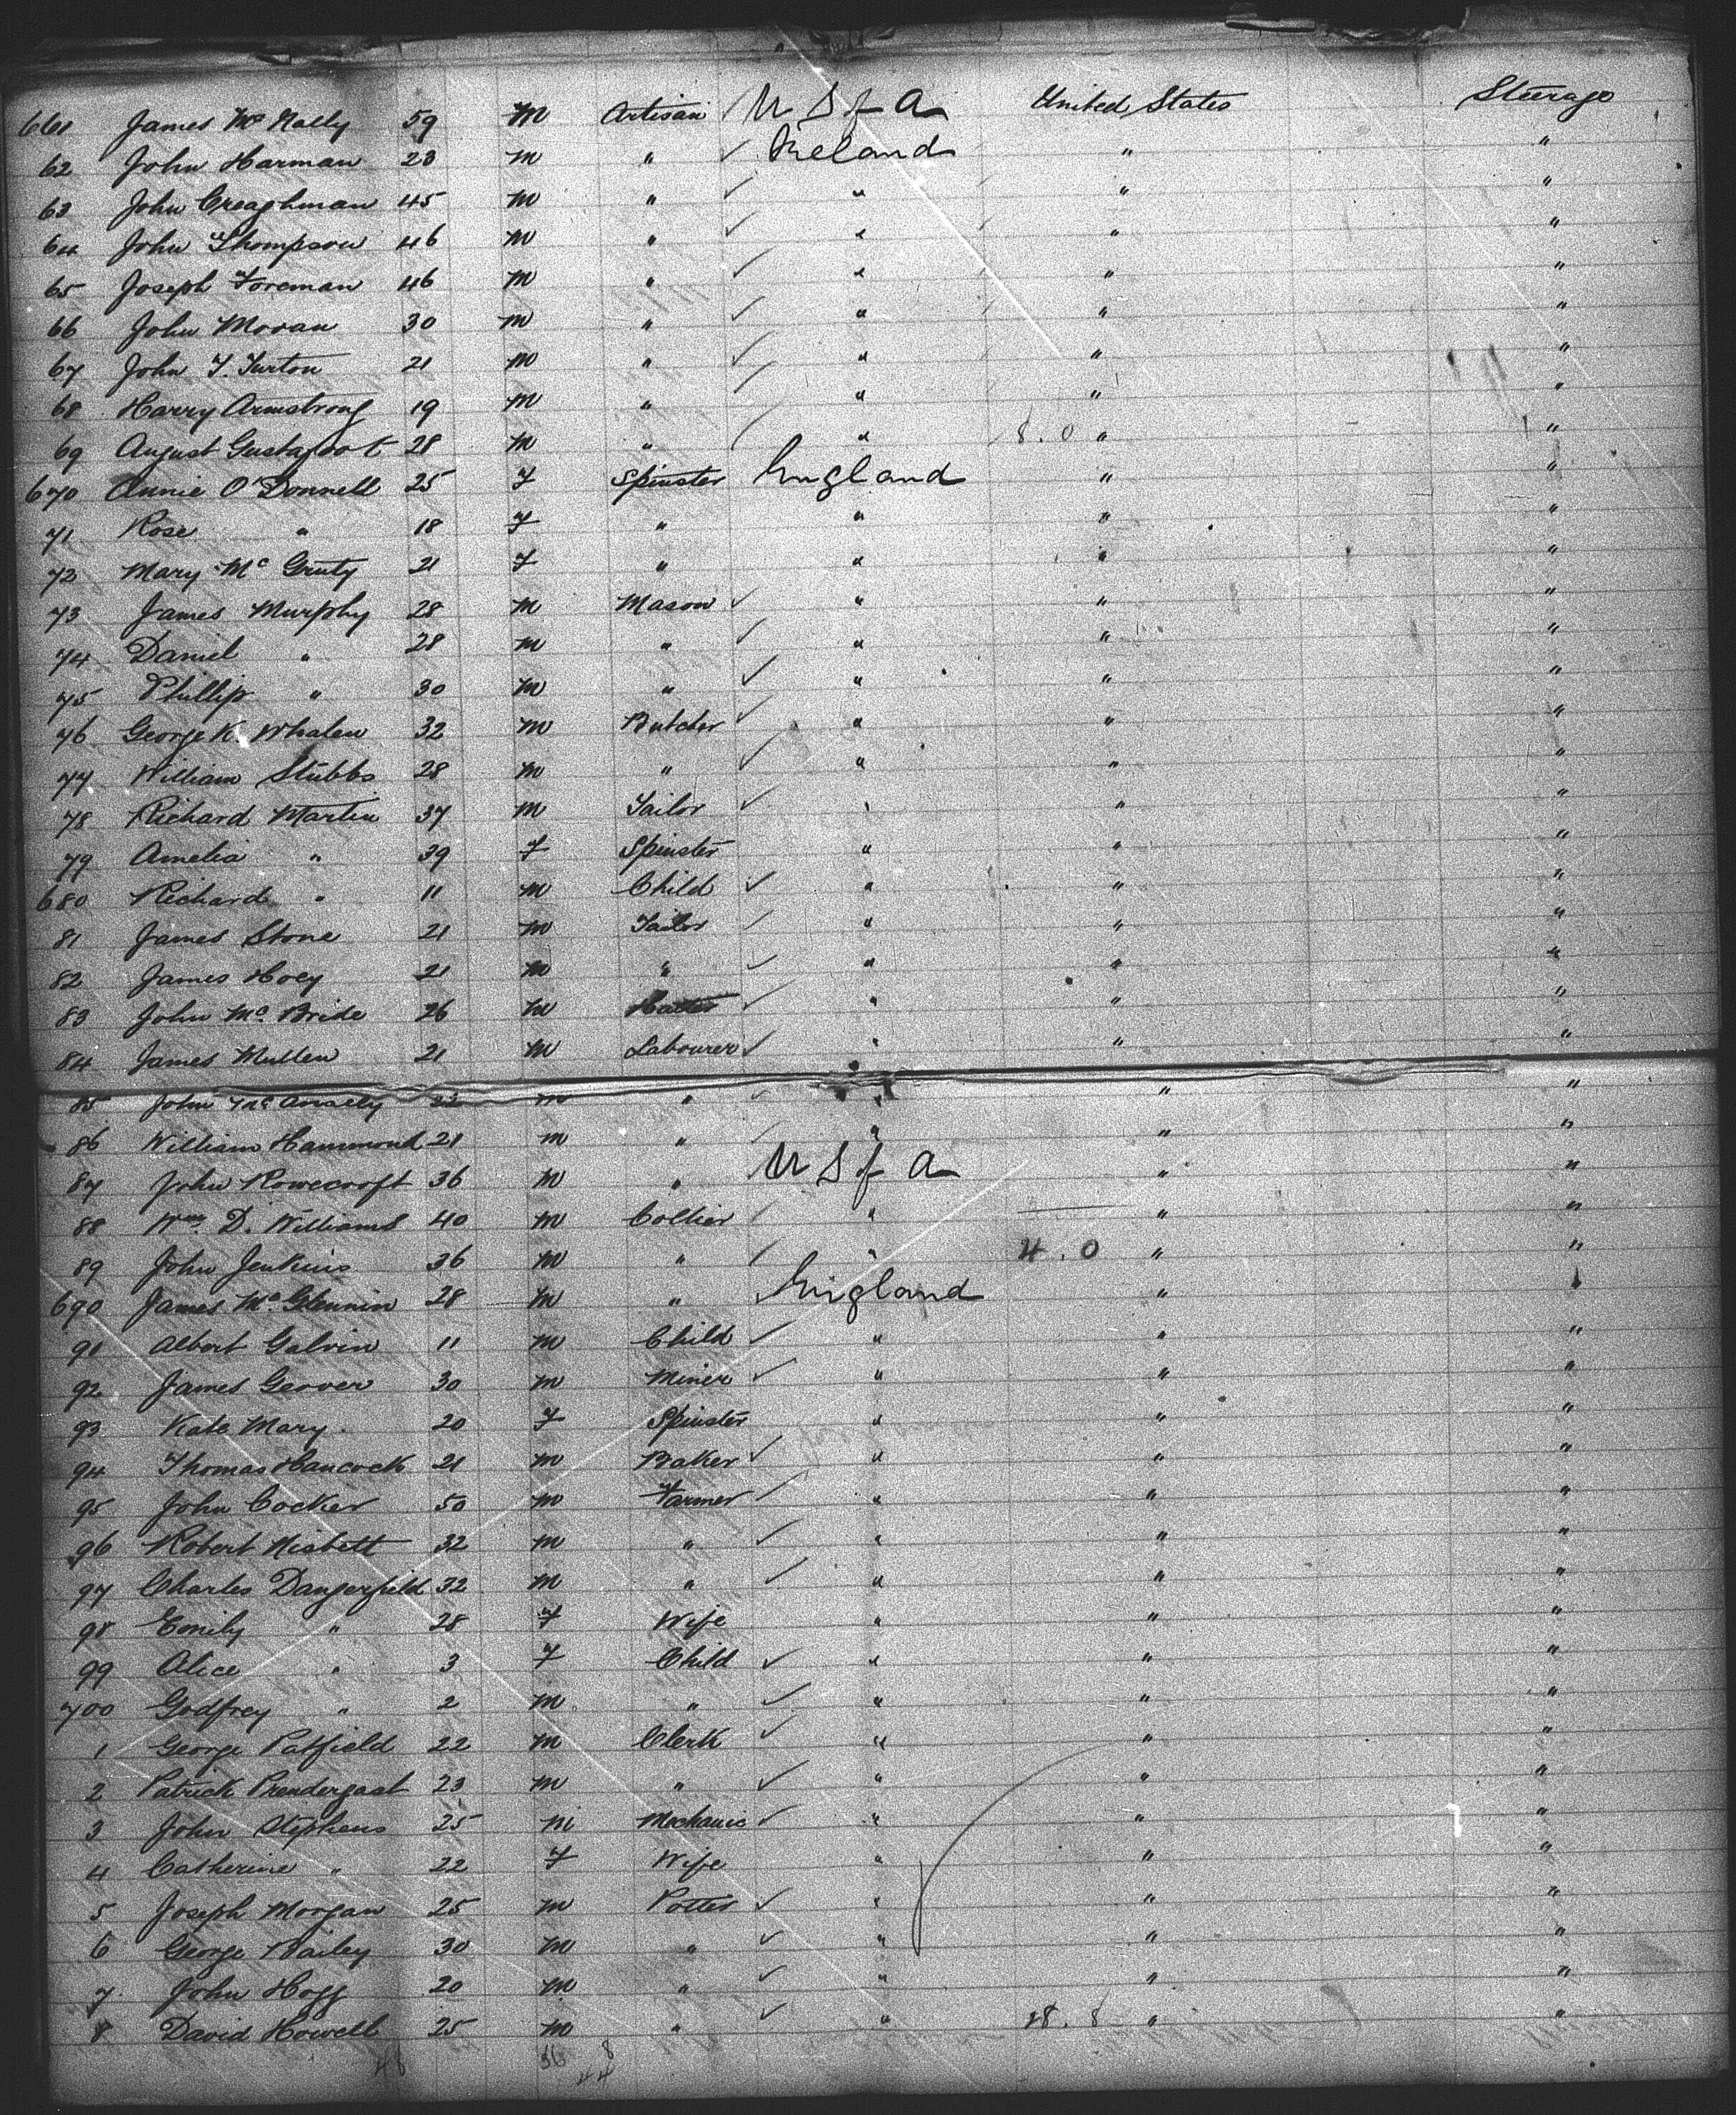 661 James McNally 59 M Artisan U S of A United States Steerage
62 John Harman 23 M " ✓ Ireland " "
63 John Creaghman 45 M " ✓ " " "
64 John Thompson 46 M " ✓ " " "
65 Joseph Foreman 46 M " ✓ " " "
66 John Moran 30 M " ✓ " " "
67 John T. Turton 21 M " ✓ " " "
68 Harry Armstrong 19 M " ✓ " " "
69 August 28 M " ✓ " 8.0 " "
670 Annie O'Donnell 25 F Spinster England " "
71 Rose " 18 F " " " "
72 Mary Mc Ginty 21 F " " " "
73 James Murphy 28 M Mason ✓ " " "
74 Daniel " 28 M " ✓ " " "
75 Phillip " 30 M " ✓ " " "
76 George K. Whalen 32 M Butcher ✓ " " "
77 William Stubbs 28 M " ✓ " " "
78 Richard Martin 37 M Tailor ✓ " " "
79 Amelia " 39 F Spinster " " "
680 Richard " 11 M Child ✓ " " "
81 James Stone 21 M Tailor ✓ " " "
82 James Hoey 21 M " ✓ " " "
83 John McBride 26 M Hatter ✓ " " "
84 James Mullen 21 M Labourer ✓ " " "
85 John Mc Anally 22 M " ✓ " " "
86 William Hammond 21 M " ✓ " " "
87 John Rowecroft 36 M " U S of A " "
88 Wm. D. Williams 40 M Collier ✓ " " "
89 John Jenkins 36 M " ✓ " 4.0 " "
690 James McGlennin 28 M " ✓ England " "
91 Albert Galvin 11 M Child ✓ " " "
92 James Geover 30 M Miner ✓ " " "
93 Kate Mary. 20 F Spinster " " "
94 Thomas Hancock 21 M Baker ✓ " " "
95 John Cocker 50 M Farmer ✓ " " "
96 Robert Nisbett 32 M " ✓ " " "
97 Charles Dangerfield 32 M " ✓ " " "
98 Emily " 28 F Wife " " "
99 Alice " 3 F Child ✓ " " "
700 Godfrey " 2 M " ✓ " " "
1 George Patfield 22 M Clerk ✓ " " "
2 Patrick Prendergast 23 M " ✓ " " "
3 John Stephens 25 M Mechanic ✓ " " "
4 Catherine " 22 F Wife " " "
5 Joseph Morgan 25 M Potter ✓ " " "
6 George Bailey 30 M " ✓ " " "
7 John Hogg 20 M " ✓ " " "
8 David Howell 25 M " ✓ " 28.8 " "
48 36 8
44